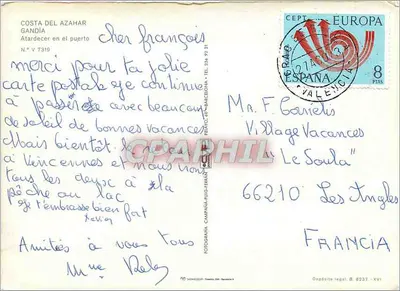 COSTA DEL AZAHAR
GANDÍA
Atardecer en el puerto
N.º V 7319
cher françois
merci pour ta jolie
carte postale je continue
à passer avec beaucoup
de soleil de bonnes vacances
Mais bientôt
à Vincennes et nous irons
tous les deux à la
pêche au lac
je t'embrasse bien fort
Amitiés à vous tous
Mme
CEPT EUROPA
ESPAÑA
8
PTAS
GRAO
VALENCIA
Mr F.
Village Vacances
"Le Soula"
66210 Les Angles
FRANCIA
CPAPHIL
Depósito legal B.